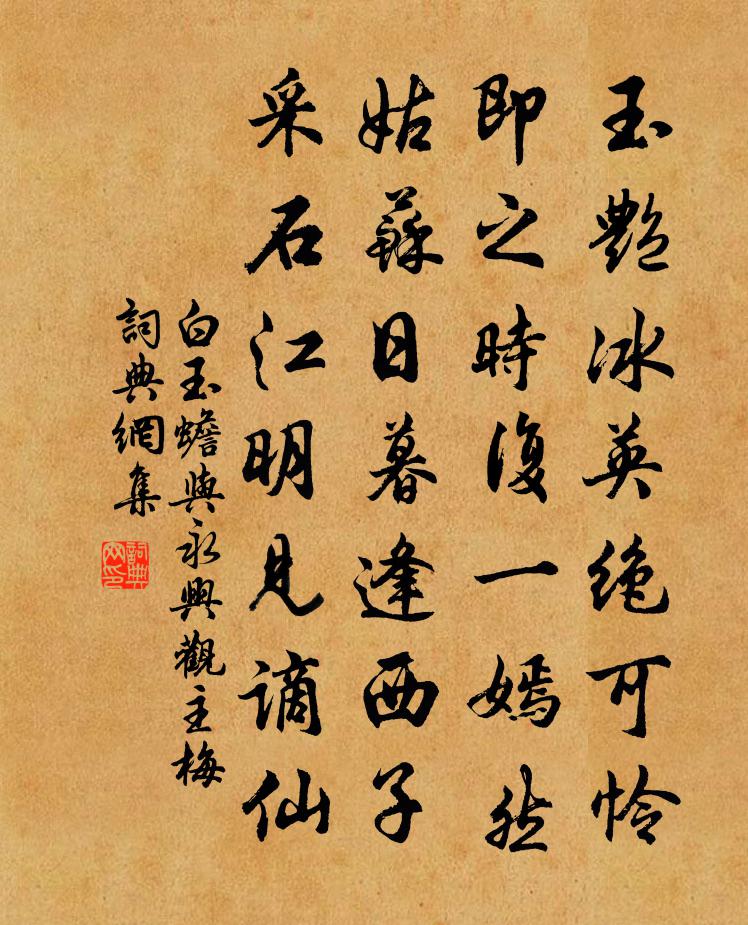 玉艷冰英絕可憐
即之時復一嫣然
姑蘇日暮逢西子
采石江明見謫仙
白玉蟾與永興觀主梅
詞典網集
詞典網印